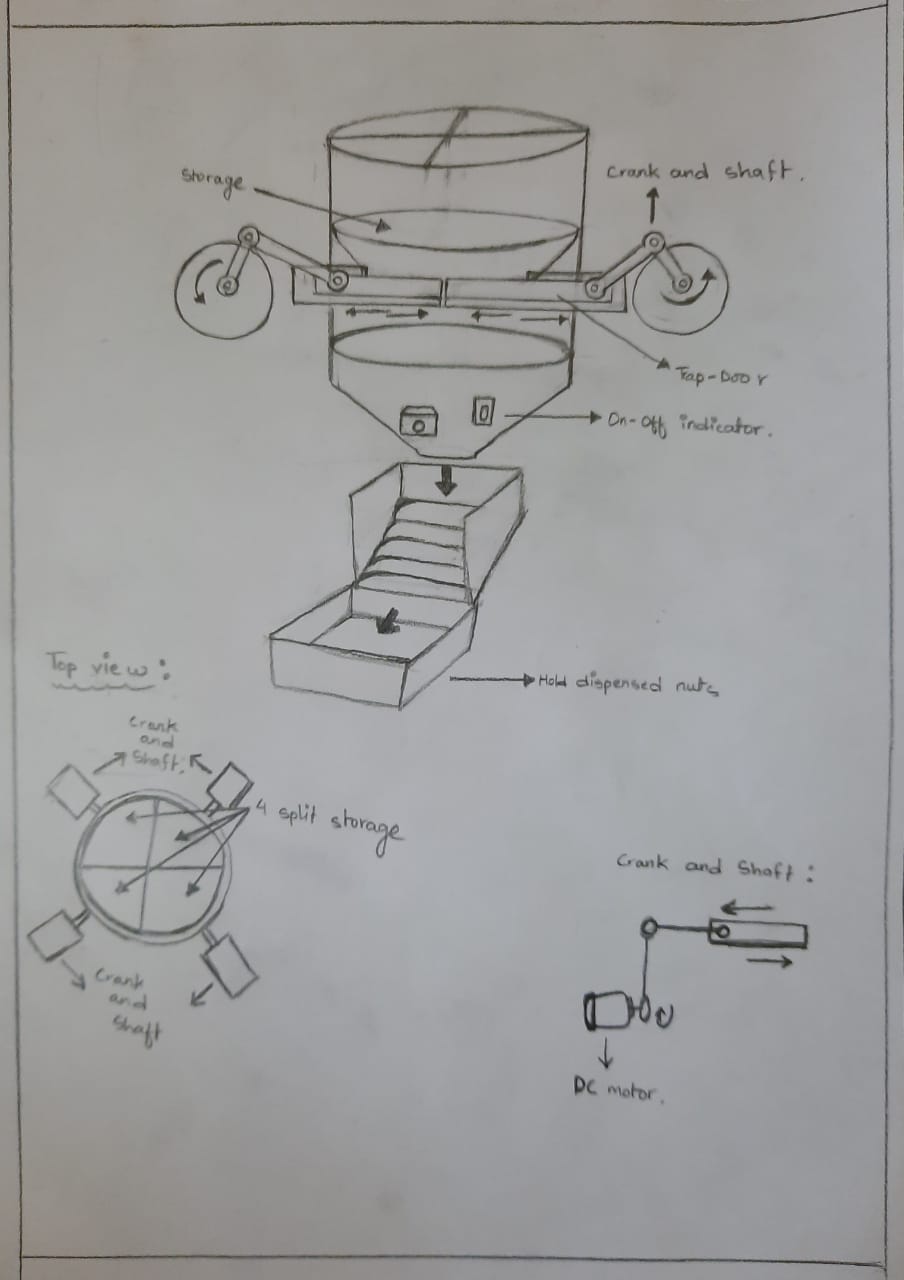 Storage
Crank and shaft.
Trap-Door
On-Off indicator.
Hold dispensed nuts
Top view:
Crank
and
Shaft.
4 split storage
Crank
and
Shaft
Crank and Shaft:
DC motor.